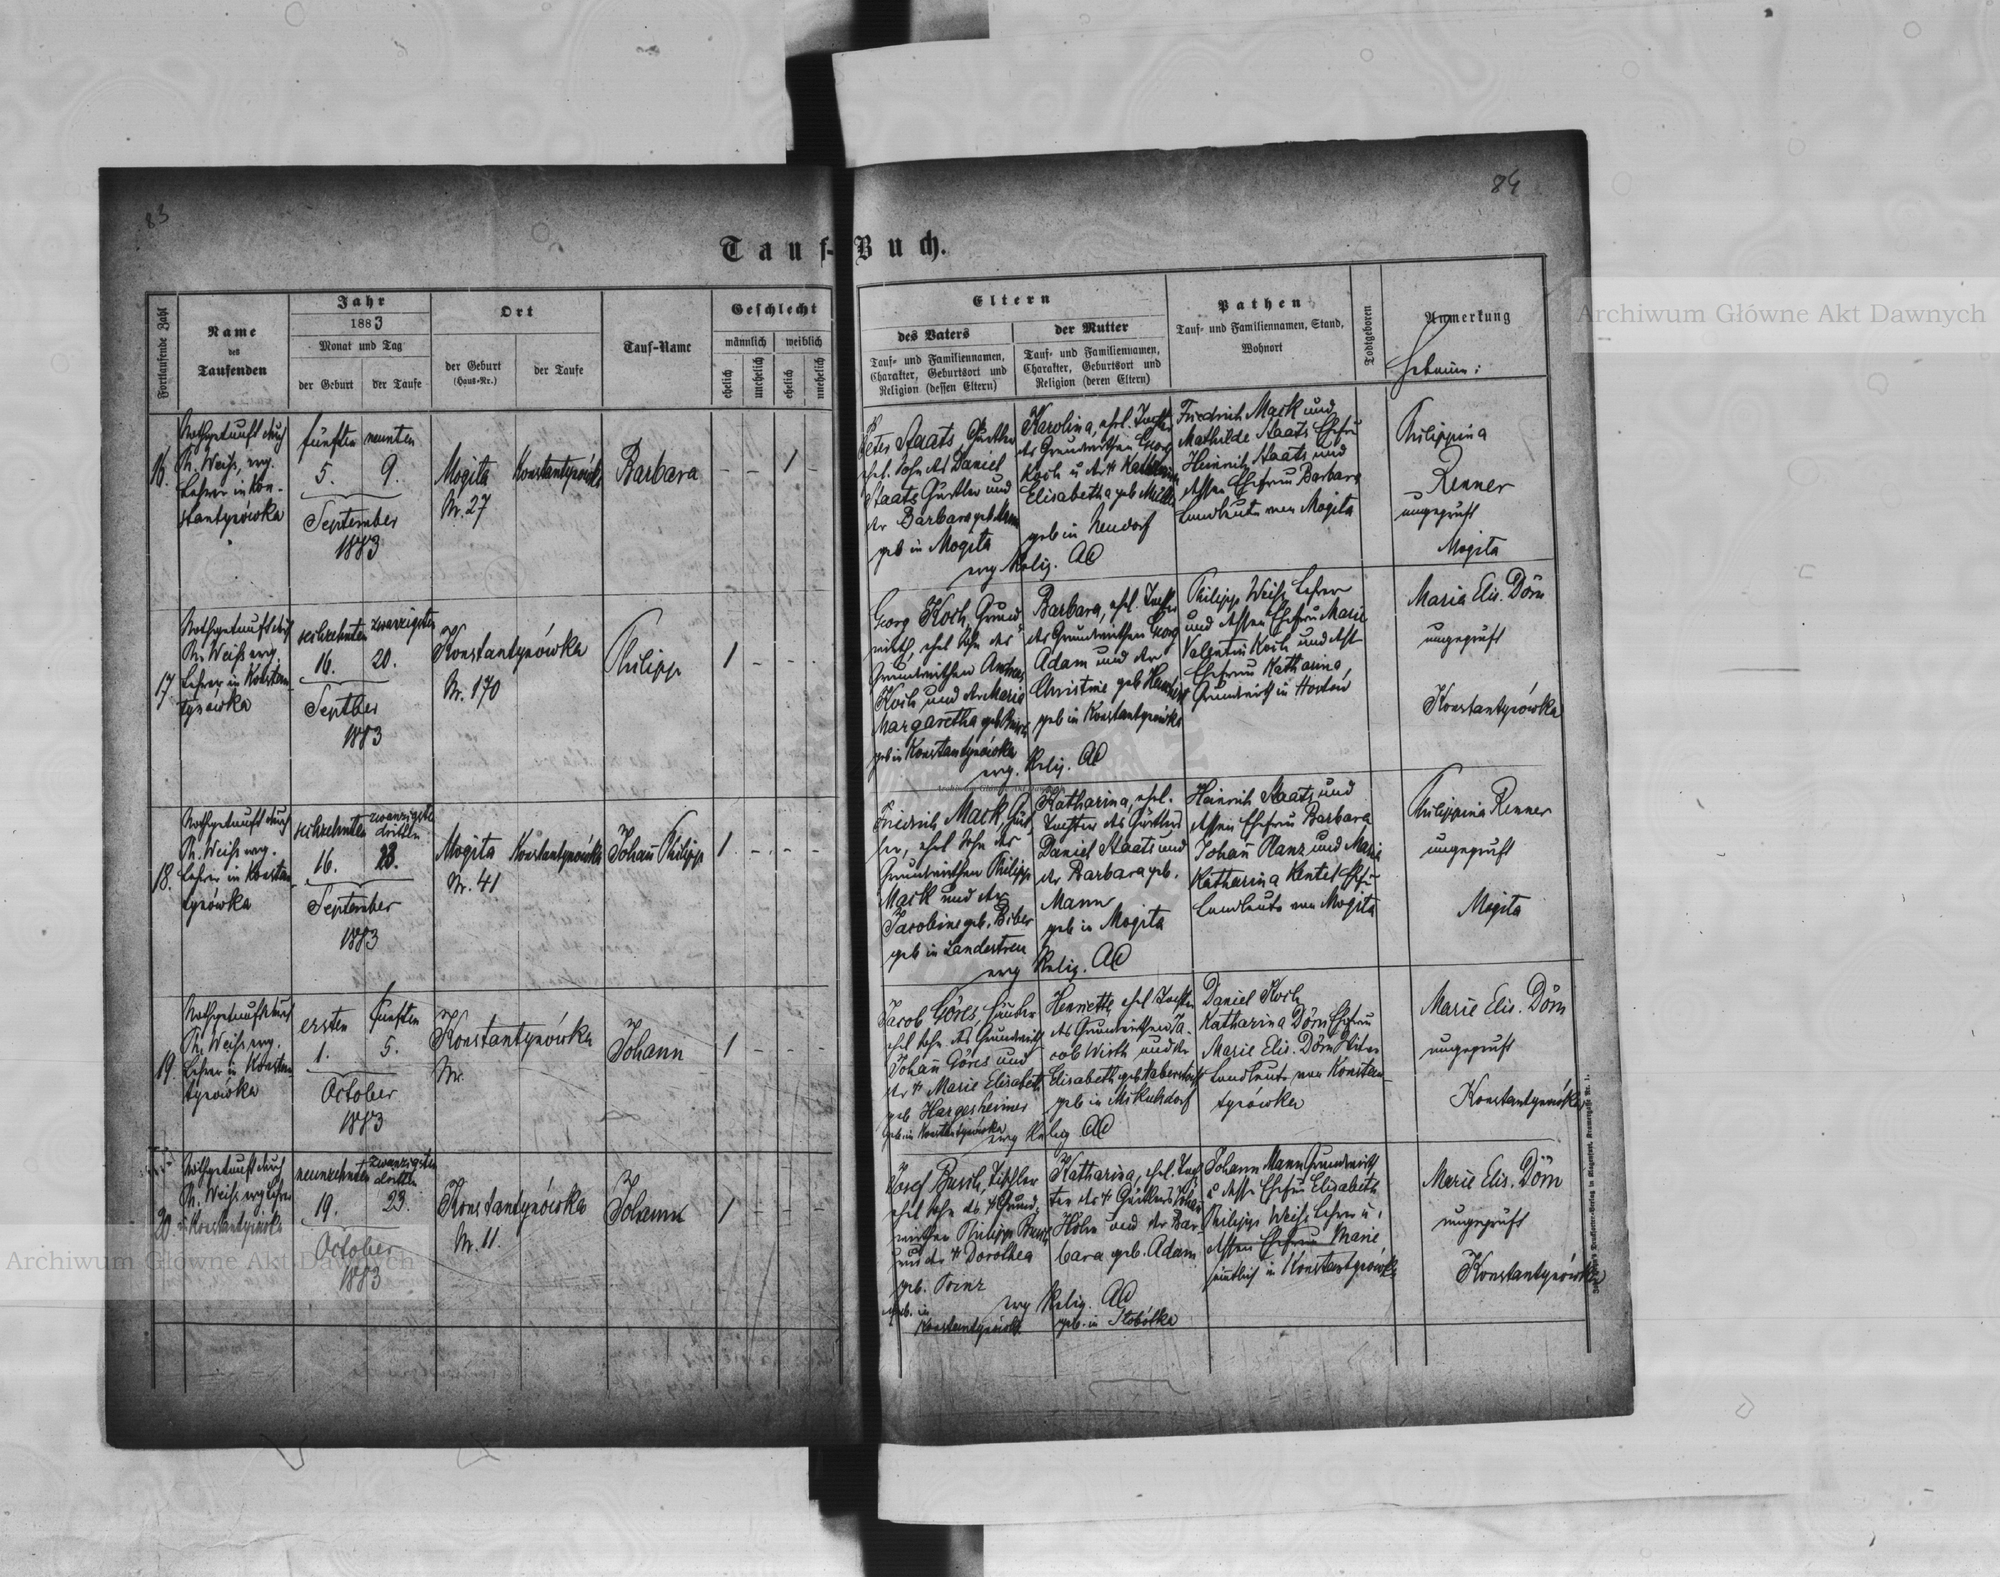 83
84
Tauf-Buch.
Fortlaufende Zahl
Name
des
Taufenden
Jahr
1883
Monat und Tag
der Geburt
der Taufe
Ort
der Geburt
(Haus-Nr.)
der Taufe
Tauf-Name
Geschlecht
männlich
weiblich
ehelich
unehelich
ehelich
unehelich
Eltern
des Vaters
Tauf- und Familiennamen,
Charakter, Geburtsort und
Religion (dessen Eltern)
der Mutter
Tauf- und Familiennamen,
Charakter, Geburtsort und
Religion (deren Eltern)
Pathen
Tauf- und Familiennamen, Stand,
Wohnort
Todtgeboren
Anmerkung
Hebamme:
16.
Nothgetauft durch
Ph. Weiß, evg.
Lehrer in Kon-
stantynówka
fünften
5.
neunten
9.
September
1883
Mogita
Nr. 27
Konstantynówka
Barbara
- - 1 -
Peter Staats, Gürtler
ehel. Sohn des Daniel
Staats Gürtler und
der Barbara geb. Mann
geb in Mogita
Karolina, ehel. Tochter
des Grundwirthen Georg
Koch u der
Elisabetha geb
geb in Neudorf
evg Relig. AC
Friedrich Mack und
Mathilde Staats Ehefrau
Heinrich Staats und
dessen Ehefrau Barbara
Landleute von Mogita
Philippina
Renner
ungeprüft
Mogita
17.
Nothgetauft durch
Ph. Weiß evg.
Lehrer in Konstan-
tynówka
sechzehnten
16.
zwanzigsten
20.
Septber
1883
Konstantynówka
Nr. 170
Philipp
1 - - -
Georg Koch, Grund-
wirth, ehel Sohn des
Grundwirthen Andreas
Koch und der Maria
Margaretha geb
geb in Konstantynówka
Barbara, ehel. Tochter
des Grundwirthen Georg
Adam und der
Christine geb
geb in Konstantynówka
evg. Relig. AC
Philipp Weiß Lehrer
und dessen Ehefrau Marie
Valentin Koch und dess.
Ehefrau Katharina,
Grundwirth in
Maria Elis. Dörn
ungeprüft
Konstantynówka
18.
Nothgetauft durch
Ph. Weiß evg.
Lehrer in Konstan-
tynówka
sechzehnten
16.
zwanzigsten
dritten
23.
September
1883
Mogita
Nr. 41
Konstantynówka
Johann Philipp
1 - - -
Friedrich Mack Gürt-
ler, ehel Sohn des
Grundwirthen Philipp
Mack und der
Jacobine geb. Biber
geb in Landestreu
Katharina, ehel.
Tochter des Gürtlers
Daniel Staats und
der Barbara geb.
Mann
geb in Mogita
evg Relig. AC
Heinrich Staats und
dessen Ehefrau Barbara
Johann Planz und Maria
Katharina Kentel Ehefr
Landleute von Mogita
Philippina Renner
ungeprüft
Mogita
19.
Nothgetauft durch
Ph. Weiß evg.
Lehrer in Konstan-
tynówka
ersten
1.
fünften
5.
October
1883
Konstantynówka
Nr.
Johann
1 - - -
Jacob Göres,
ehel Sohn des Grundwirth
Johann Göres und
der † Marie Elisabeth
geb Hargesheimer
geb in Konstantynówka
Henriette, ehel Tochter
des Grundwirthen Ja-
cob Wirth und der
Elisabeth geb
geb in Mikulsdorf
evg Relig AC
Daniel Koch
Katharina Dörn Ehefrau
Marie Elis. Dörn
Landleute von Konstan-
tynówka
Marie Elis. Dörn
ungeprüft
Konstantynówka
20.
Nothgetauft durch
Ph. Weiß evg Lehrer
in Konstantynówka
neunzehnten
19.
zwanzigsten
dritten
23.
October
1883
Konstantynówka
Nr. 11.
Johann
1 - - -
Josef Busch, Tischler
ehel Sohn des † Grund-
wirthen Philipp Busch
und der † Dorothea
geb.
geb. in
Konstantynówka
Katharina, ehel. Toch-
ter des † Gürtlers Johann
Holn und der Bar-
bara geb. Adam
evg Relig. AC
geb. in Slobótka
Johann Mann Grundwirth
u dessen Ehefrau Elisabeth
Philipp Weiß Lehrer u.
dessen Ehefrau Marie
sämtlich in Konstantynówka
Marie Elis. Dörn
ungeprüft
Konstantynówka
Archiwum Główne Akt Dawnych
Archiwum Główne Akt Dawnych
Archiwum Główne Akt Dawnych